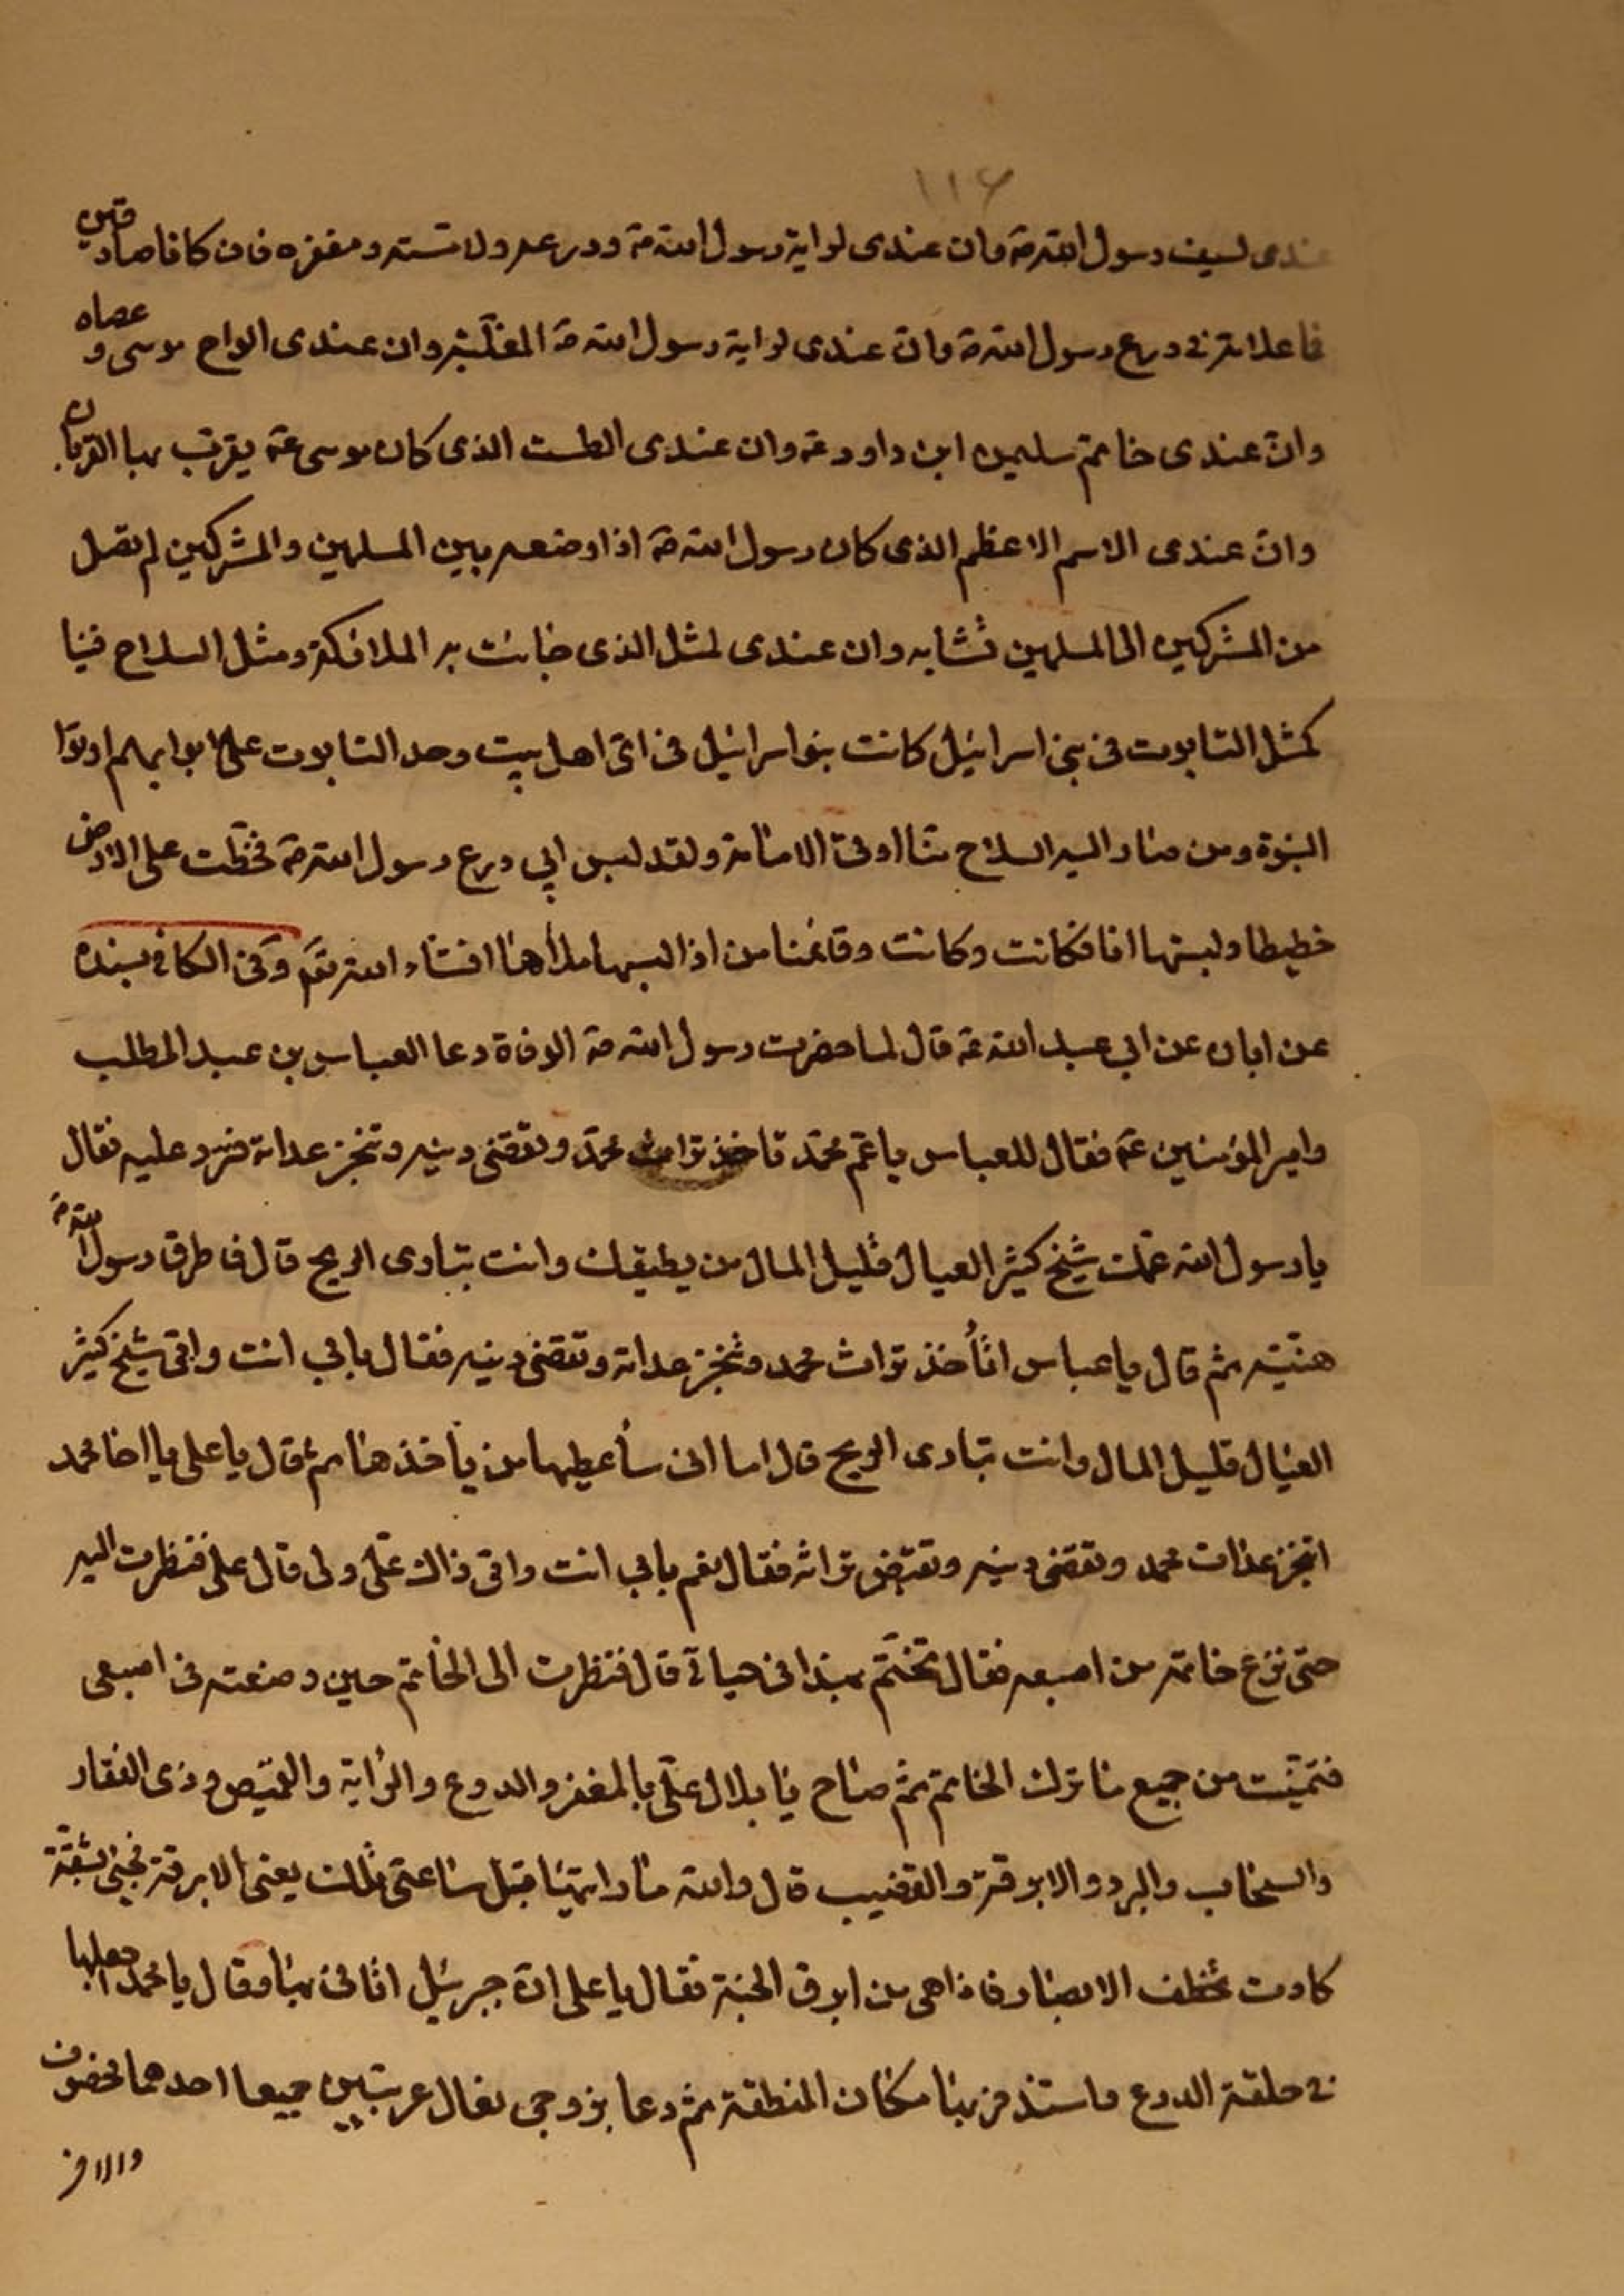 ١١٤
عندى لسيف رسول الله ص وان عندى لراية رسول الله ص ودرعه ولامته ومغفره فان كانا صادقين
فما علامة فى درع رسول الله ص وان عندى لراية رسول الله ص المغلبة وان عندى الواح موسى وعصاه
وان عندى خاتم سليمن ابن داود ع وان عندى الطست الذى كان موسى ع يقرب بها القربان
وان عندى الاسم الاعظم الذى كان رسول الله ص اذا وضعه بين المسلمين والمشركين لم تصل
من المشركين الى المسلمين نشابه وان عندى لمثل الذى جائت به الملائكة ومثل السلاح فينا
كمثل التابوت فى بنى اسرائيل كانت بنو اسرائيل فى اى اهل بيت وجد التابوت على ابوابهم اوتوا
النبوة ومن صار اليه السلاح منا اوتى الامامة ولقد لبس ابي درع رسول الله ص فخطت على الارض
خطيطا ولبستها انا فكانت وكانت وقائمنا من اذا لبسها ملأها انشاء الله تعم وفى الكافى بسنده
عن ابان عن ابي عبد الله ع قال لما حضرت رسول الله ص الوفاة دعا العباس بن عبد المطلب
وامير المؤمنين ع فقال للعباس يا عم محمد تاخذ تراث محمد وتقضى دينه وتنجز عداته فرد عليه فقال
يا رسول الله عمك شيخ كثير العيال قليل المال من يطيقك وانت تبارى الريح قال فاطرق رسول الله ص
هنيئة ثم قال يا عباس اتأخذ تراث محمد وتنجز عداته وتقضى دينه فقال بابي انت وامى شيخ كثير
العيال قليل المال وانت تبارى الريح قال اما انى سأعطيها من يأخذها ثم قال يا على يا اخا محمد
اتنجز عدات محمد وتقضى دينه وتقبض تراثه فقال نعم بابي انت وامى ذاك على ولى قال على فنظرت اليه
حتى نزع خاتمه من اصبعه فقال تختم بهذا فى حياتى قال فنظرت الى الخاتم حين وضعته فى اصبعى
فتمنيت من جميع ما ترك الخاتم ثم صاح يا بلال على بالمغفر والدرع والراية والقميص وذى الفقار
والسحاب والبرد والابرقة والقضيب قال والله ما رايتها قبل ساعتى تلك يعنى الابرقة فجئ بشقة
كادت تخطف الابصار فاذا هى من ابرق الجنة فقال يا على ان جبرئيل اتانى بها وقال يا محمد اجعلها
فى حلقة الدرع واستذفر بها مكان المنطقة ثم دعا بزوجى نعال عربيتين جميعا احدهما مخضوف
والاخر